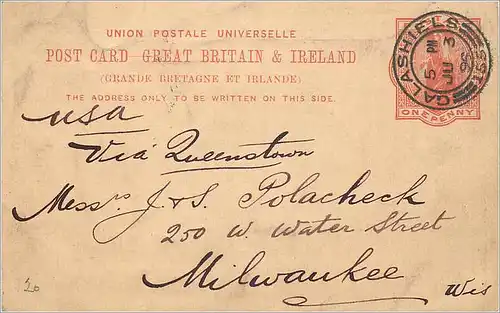 UNION POSTALE UNIVERSELLE
POST CARD–GREAT BRITAIN & IRELAND
(GRANDE BRETAGNE ET IRLANDE)
THE ADDRESS ONLY TO BE WRITTEN ON THIS SIDE.
GALASHIELS
5 PM
JU 3
ONE PENNY
USA
Via Queenstown
Messrs J. & S. Polacheck
250 W. Water Street
Milwaukee Wis
20